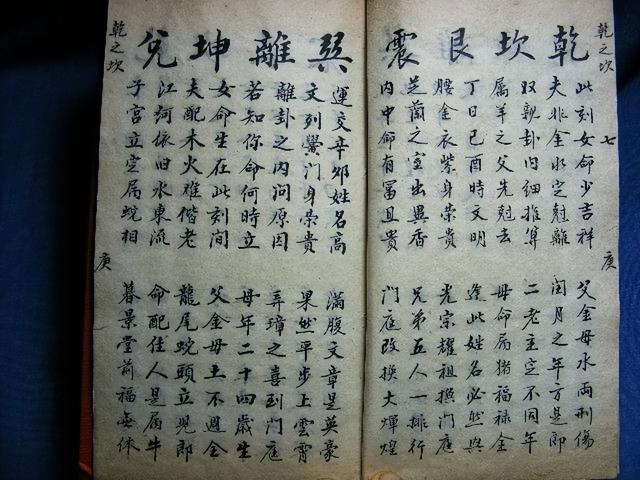 乾之坎 七 庚
乾 坎 艮 震
此刻女命少吉祥 父金母水兩刑傷
夫非金水定尅離 閏月之年方是即
双親卦内細推算 二老主定不同年
属羊之父先尅去 母命属猪福禄全
丁日己酉時文明 逢此姓名必然與
腰金衣紫身榮貴 光宗耀祖換門庭
芝蘭之室出異香 兄弟五人一排行
内中命有冨且貴 門庭改換大煇煌
巽 離 坤 兌
運交辛夘姓名高 滿腹文章是英豪
文列黌門身榮貴 果然平步上雲霄
離卦之内問原因 弄璋之喜到門庭
若知你命何時立 母年二十四歲生
女命生在此刻间 父金母土不週全
夫配木火难偕老 龍尾蛇頭立児郎
江河依旧水東流 命配佳人是属牛
子宫立定属蛇相 暮景堂前福無休
乾之坎 庚